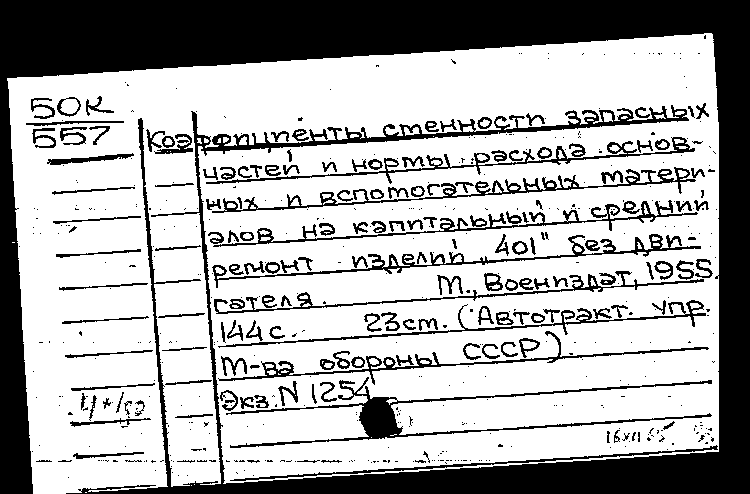 50К
557
Коэффициенты стенности запасных
частей и нормы расхода основ-
ных и вспомогательных матери-
алов на капитальный и средний
ремонт изделий „401" без дви-
гателя. М., Воениздат, 1955.
144с. 23см. (Автотракт. упр.
М-ва обороны СССР).
Экз. N 1254